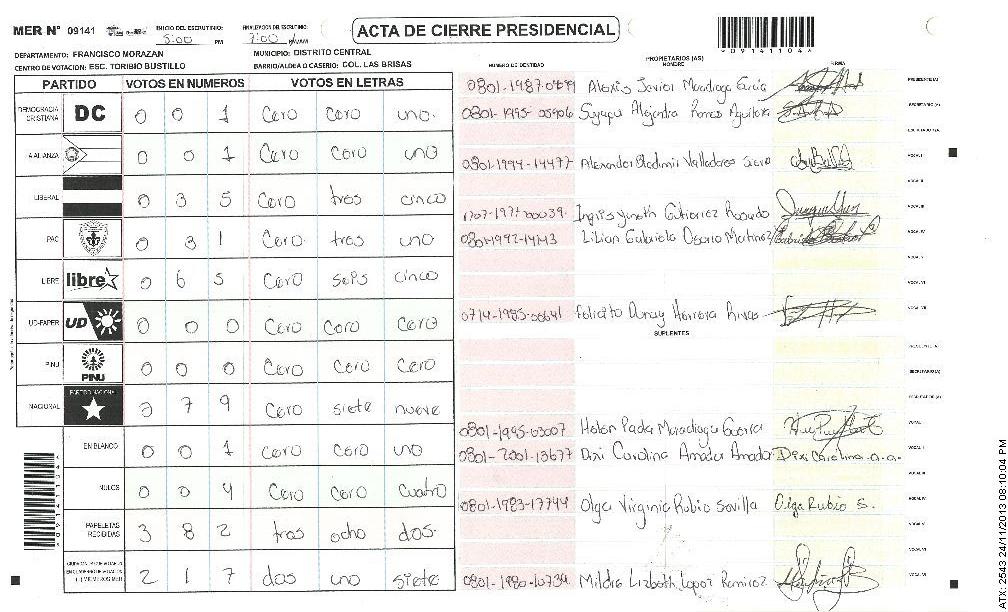 MER N° 09141 INICIO DEL ESCRUTINIO: 5:00 PM FINALIZACION DEL ESCRUTINIO: 7:00 ACTA DE CIERRE PRESIDENCIAL
*09141104*
DEPARTAMENTO: FRANCISCO MORAZAN MUNICIPIO: DISTRITO CENTRAL
CENTRO DE VOTACION: ESC. TORIBIO BUSTILLO BARRIO/ALDEA O CASERIO: COL. LAS BRISAS
PARTIDO VOTOS EN NUMEROS VOTOS EN LETRAS
DEMOCRACIA CRISTIANA DC 0 0 1 Cero Cero uno.
ALIANZA 0 0 1 Cero Cero uno
LIBERAL 0 3 5 Cero tres cinco
PAC 0 3 1 Cero tres uno
LIBRE libre 0 6 5 Cero seis cinco
UD-FAPER UD 0 0 0 Cero Cero Cero
PINU PINU 0 0 0 Cero Cero Cero
NACIONAL PARTIDO NACIONAL 0 7 9 Cero siete nueve
EN BLANCO 0 0 1 Cero Cero uno
NULOS 0 0 4 Cero Cero Cuatro
PAPELETAS RECIBIDAS 3 8 2 tres ocho dos.
2 1 7 dos uno siete
NUMERO DE IDENTIDAD PROPIETARIOS (AS) NOMBRE FIRMA
Alexis Javier Maradiaga Garcia PRESIDENTE (A)
Alejandra Aguilera SECRETARIO (A)
0801-1994-14477 Alexander Bladimir Valladares VOCAL I
Yineth Gutierrez Rosado VOCAL III
Lilian Gabriela Osorio Martinez VOCAL IV
VOCAL V
VOCAL VI
0714-1985-00641 Herrera Rivas VOCAL VII
SUPLENTES
PRESIDENTE (A)
SECRETARIO (A)
0801-1995-03007 Maradiaga Guerra
0801-2001-13677 Dexi Carolina Amador Amador Dexi Carolina a.a.
0801-1983-17744 Olga Virginia Rubio Sevilla Olga Rubio S. VOCAL IV
VOCAL V
VOCAL VI
0801-1980-10739 Lizbeth Lopez Ramirez VOCAL VII
ATX: 2543 24/11/2013 08:10:04 PM